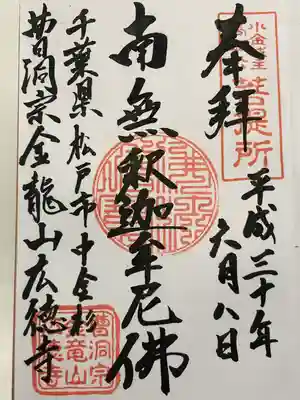 小金城主
菩提所
奉拝
平成三十年
六月八日
南無釈迦牟尼佛
千葉県松戸市中金杉
曹洞宗金龍山広徳寺
曹洞宗
金竜山